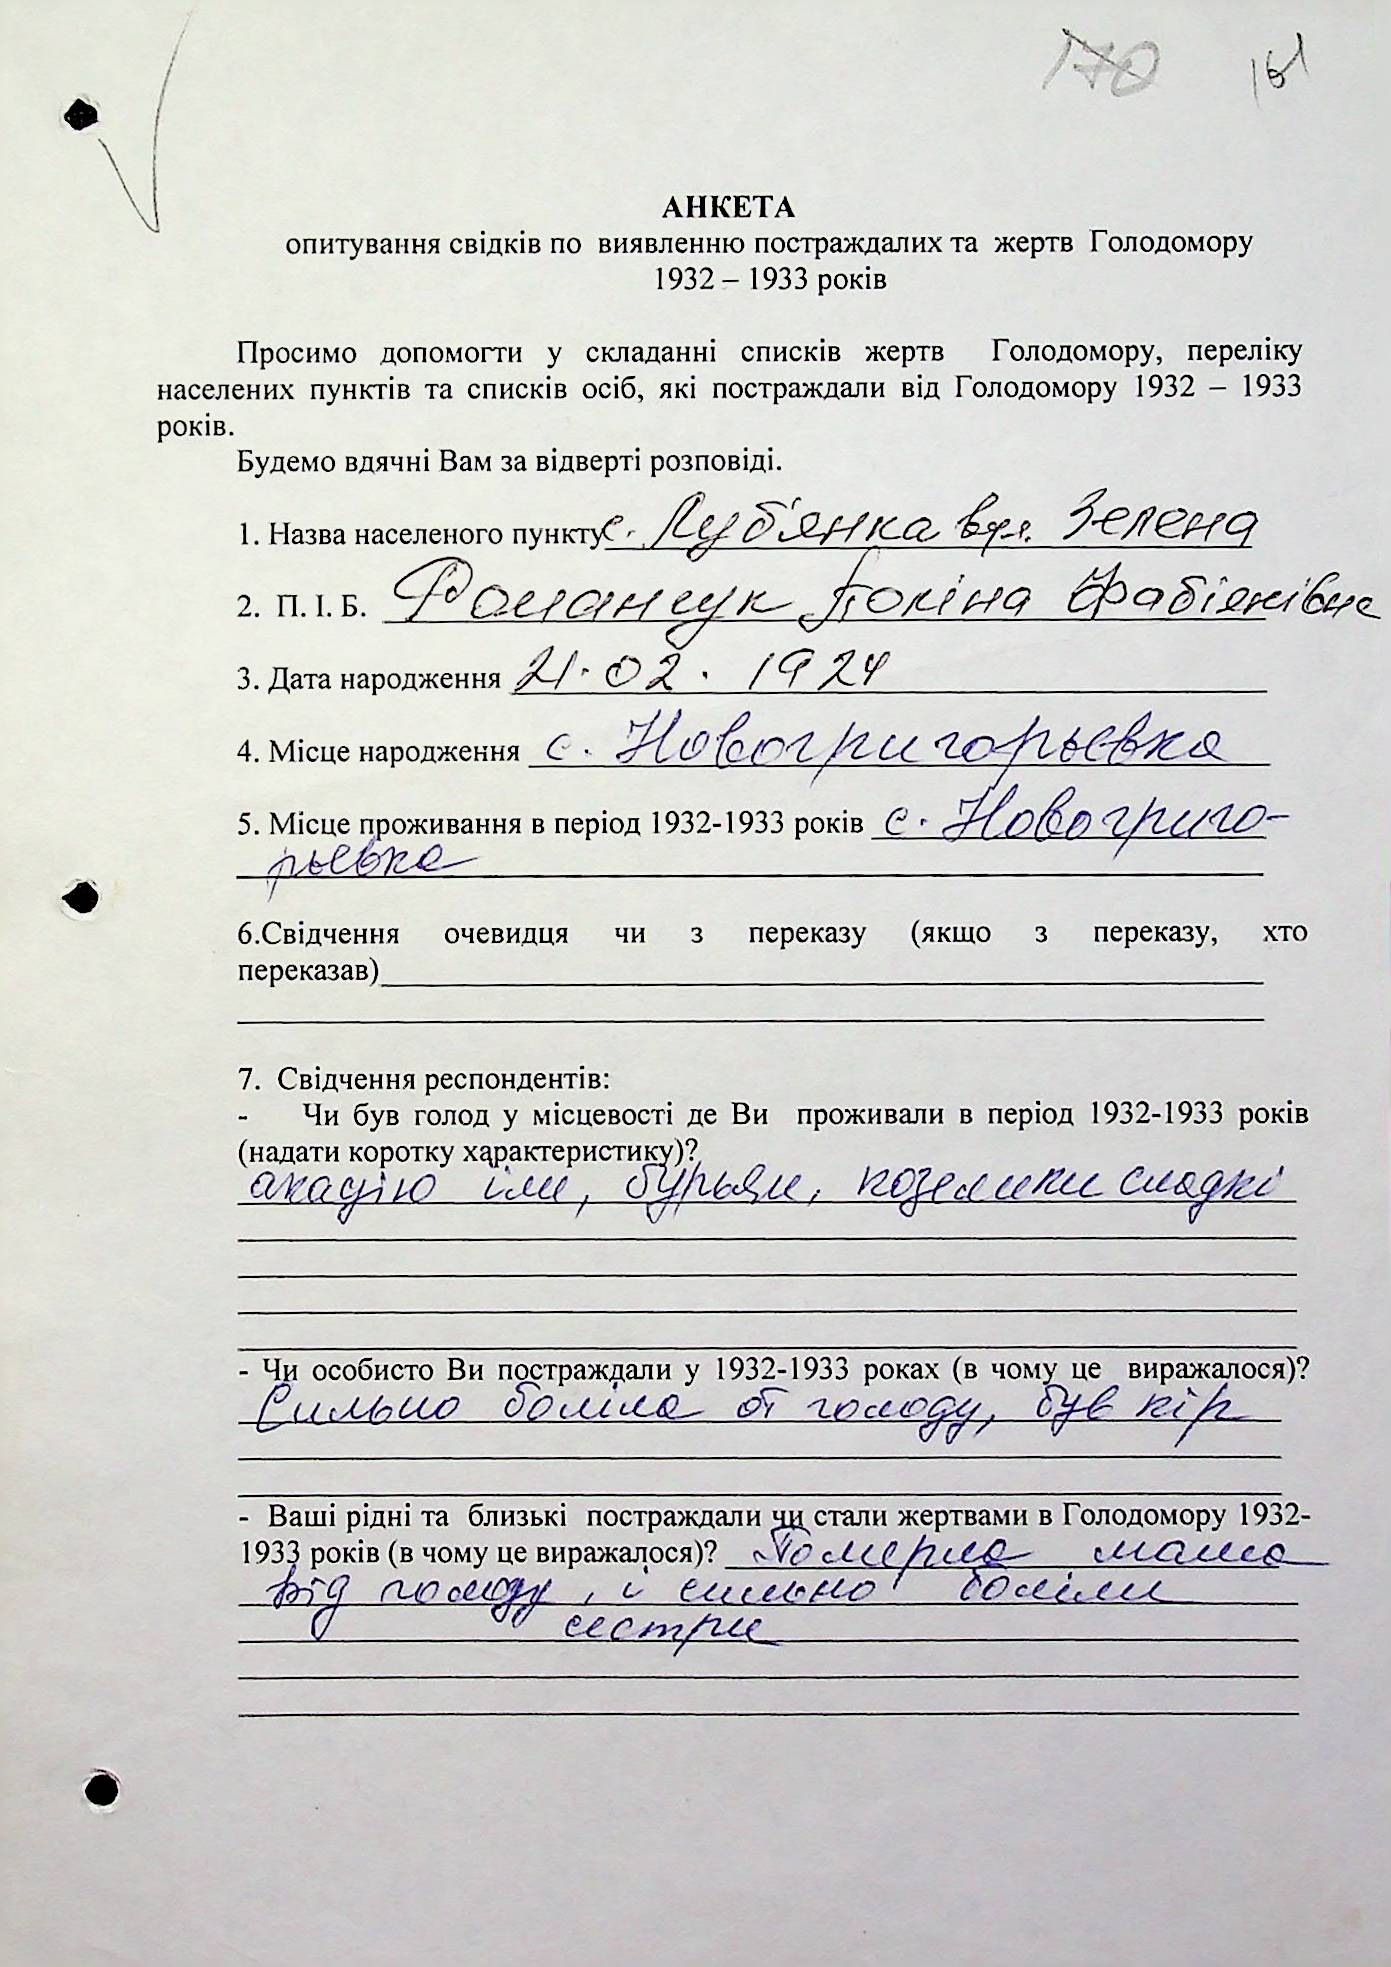 170 161
АНКЕТА
опитування свідків по виявленню постраждалих та жертв Голодомору
1932 – 1933 років
Просимо допомогти у складанні списків жертв Голодомору, переліку
населених пунктів та списків осіб, які постраждали від Голодомору 1932 – 1933
років.
Будемо вдячні Вам за відверті розповіді.
1. Назва населеного пункту с. Луб'янка вул. Зелена
2. П. І. Б. Романчук Поліна Фабіянівна
3. Дата народження 21.02.1924
4. Місце народження с. Новогригорьевка
5. Місце проживання в період 1932-1933 років с. Новогриго-
рьевка
6.Свідчення очевидця чи з переказу (якщо з переказу, хто
переказав)
7. Свідчення респондентів:
- Чи був голод у місцевості де Ви проживали в період 1932-1933 років
(надати коротку характеристику)?
акацію їли, бурьян, козелики сладкі
- Чи особисто Ви постраждали у 1932-1933 роках (в чому це виражалося)?
Сильно боліла от голоду, був кір
- Ваші рідні та близькі постраждали чи стали жертвами в Голодомору 1932-
1933 років (в чому це виражалося)? Померла мама
від голоду, і сильно боліли
сестри